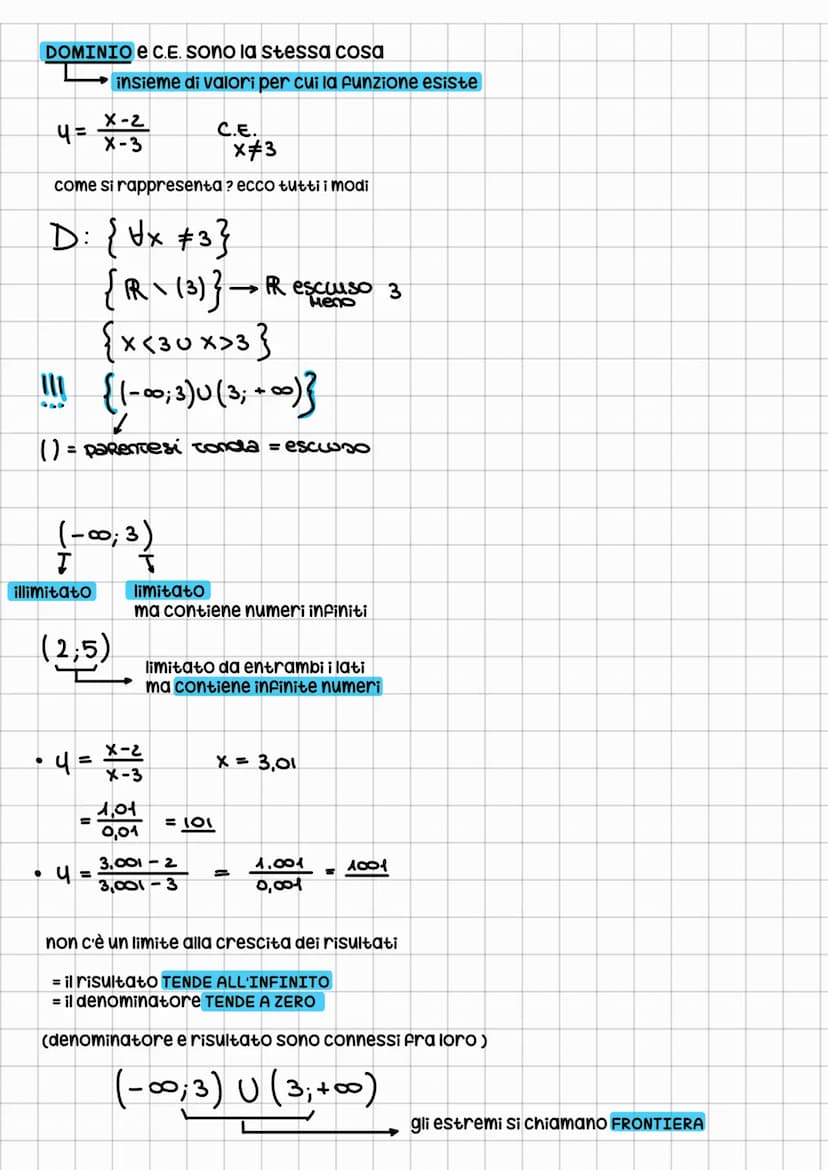 DOMINIO e C.E. sono la stessa cosa
insieme di valori per cui la funzione esiste
y = x-2/x-3 C.E. x≠3
come si rappresenta? ecco tutti i modi
D: {∀x ≠3}
{ℝ \ (3)} → ℝ escluso 3
meno
{x<3 ∪ x>3}
!!! {(-∞;3)∪(3;+∞)}
() = parentesi tonda = escluso
(-∞;3)
illimitato limitato
ma contiene numeri infiniti
(2;5)
limitato da entrambi i lati
ma contiene infinite numeri
• y = x-2/x-3 x = 3,01
= 1,01/0,01 = 101
• y = 3.001-2/3,001-3 = 1.001/0,001 = 1001
non c'è un limite alla crescita dei risultati
= il risultato TENDE ALL'INFINITO
= il denominatore TENDE A ZERO
(denominatore e risultato sono connessi fra loro)
(-∞;3) ∪ (3;+∞)
gli estremi si chiamano FRONTIERA